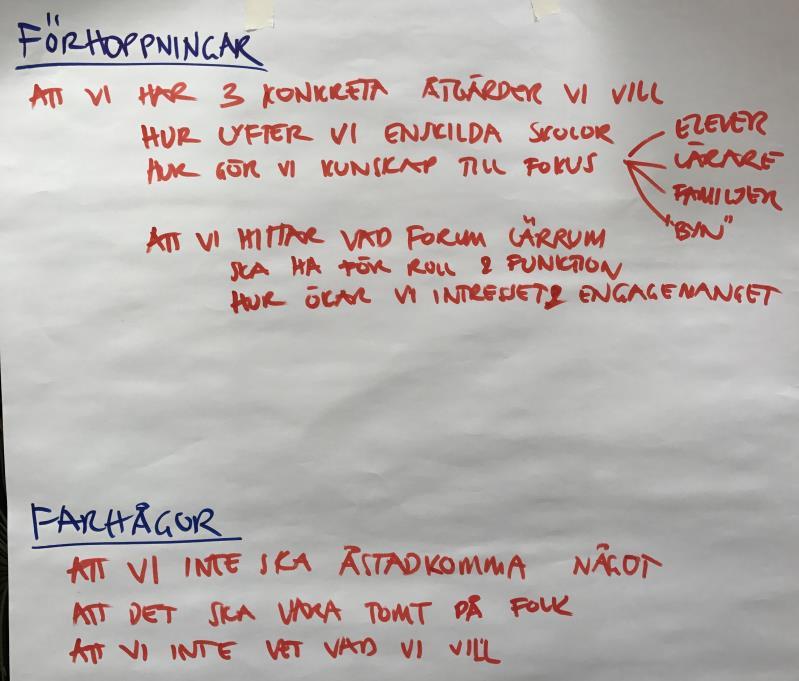 FÖRHOPPNINGAR
ATT VI HAR 3 KONKRETA ÅTGÄRDER VI VILL
HUR LYFTER VI ENSKILDA SKOLOR
HUR GÖR VI KUNSKAP TILL FOKUS
ELEVER
LÄRARE
FAMILJER
"BYN"
ATT VI HITTAR VAD FORUM LÄRRUM
SKA HA FÖR ROLL & FUNKTION
HUR ÖKAR VI INTRESSET & ENGAGEMANGET
FARHÅGOR
ATT VI INTE SKA ÅSTADKOMMA NÅGOT
ATT DET SKA VARA TOMT PÅ FOLK
ATT VI INTE VET VAD VI VILL